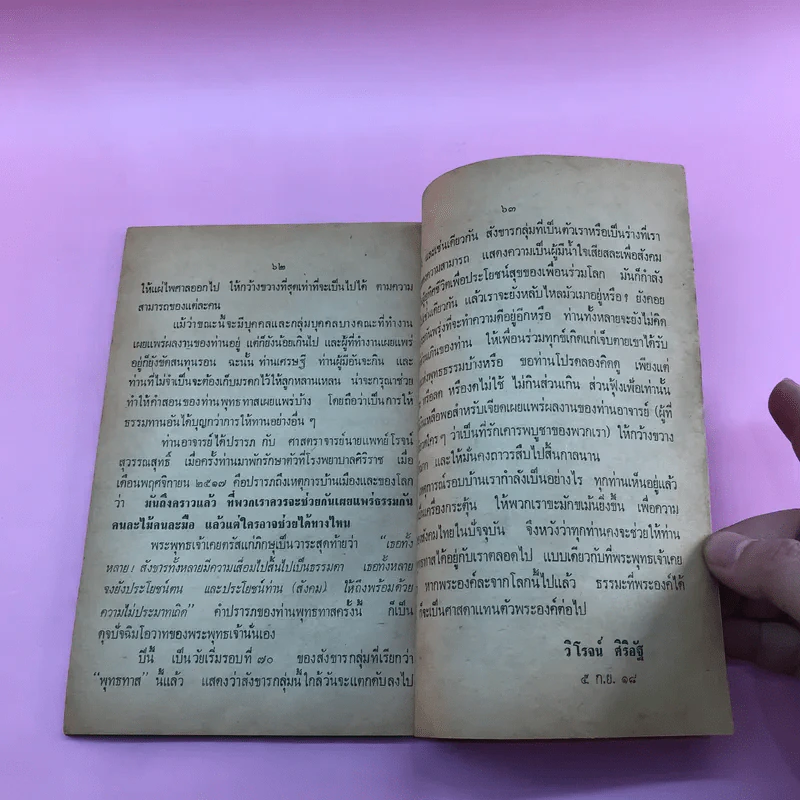 ๖๒
ให้แผ่ไพศาลออกไป ให้กว้างขวางที่สุดเท่าที่จะเป็นไปได้ ตามความ
สามารถของแต่ละคน
แม้ว่าขณะนี้จะมีบุคคลและกลุ่มบุคคลบางคณะที่ทำงาน
เผยแพร่ผลงานของท่านอยู่ แต่ก็ยังน้อยเกินไป และผู้ที่ทำงานเผยแพร่
อยู่ก็ยังขัดสนทุนรอน ฉะนั้น ท่านเศรษฐี ท่านผู้มีอันจะกิน และ
ท่านที่ไม่จำเป็นจะต้องเก็บมรดกไว้ให้ลูกหลานเหลน น่าจะกรุณาช่วย
ทำให้คำสอนของท่านพุทธทาสเผยแพร่บ้าง โดยถือว่าเป็นการให้
ธรรมทานอันได้บุญกว่าการให้ทานอย่างอื่น ๆ
ท่านอาจารย์ได้ปรารภ กับ ศาสตราจารย์นายแพทย์โรจน์
สุวรรณสุทธิ์ เมื่อครั้งท่านมาพักรักษาตัวที่โรงพยาบาลศิริราช เมื่อ
เดือนพฤศจิกายน ๒๕๑๗ โดยปรารภถึงเหตุการบ้านเมืองและของโลก
ว่า มันถึงคราวแล้ว ที่พวกเราควรจะช่วยกันเผยแพร่ธรรมกัน
คนละไม้คนละมือ แล้วแต่ใครอาจช่วยได้ทางไหน
พระพุทธเจ้าเคยตรัสแก่ภิกษุเป็นวาระสุดท้ายว่า “เธอทั้ง
หลาย! สังขารทั้งหลายมีความเสื่อมไปสิ้นไปเป็นธรรมดา เธอทั้งหลาย
จงยังประโยชน์ตน และประโยชน์ท่าน (สังคม) ให้ถึงพร้อมด้วย
ความไม่ประมาทเถิด” คำปรารภของท่านพุทธทาสครั้งนี้ ก็เป็น
ดุจปัจฉิมโอวาทของพระพุทธเจ้านั่นเอง
ปีนี้ เป็นวัยเริ่มรอบที่ ๗๐ ของสังขารกลุ่มที่เรียกว่า
“พุทธทาส” นี้แล้ว แสดงว่าสังขารกลุ่มนี้ใกล้วันจะแตกดับลงไป
๖๓
และเช่นเดียวกัน สังขารกลุ่มที่เป็นตัวเราหรือเป็นร่างที่เรา
ความสามารถ แสดงความเป็นผู้มีน้ำใจเสียสละเพื่อสังคม
อุทิศชีวิตเพื่อประโยชน์สุขของเพื่อนร่วมโลก มันก็กำลัง
เช่นเดียวกัน แล้วเราจะยังหลับใหลมัวเมาอยู่หรือ? ยังคอย
พรุ่งที่จะทำความดีอยู่อีกหรือ ท่านทั้งหลายจะยังไม่คิด
ของท่าน ให้เพื่อนร่วมทุกข์เกิดแก่เจ็บตายเขาได้รับ
พุทธธรรมบ้างหรือ ขอท่านโปรดลองคิดดู เพียงแต่
หรือลด หรืองดไม่ใช้ ไม่กินส่วนเกิน ส่วนฟุ้งเพ้อเท่านั้น
เหลือพอสำหรับเจียดเผยแพร่ผลงานของท่านอาจารย์ (ผู้ที่
ใคร ๆ ว่าเป็นที่รักเคารพบูชาของพวกเรา) ให้กว้างขวาง
และให้มั่นคงถาวรสืบไปสิ้นกาลนาน
เหตุการณ์รอบบ้านเรากำลังเป็นอย่างไร ทุกท่านเห็นอยู่แล้ว
เครื่องกระตุ้น ให้พวกเราขะมักเขม้นยิ่งขึ้น เพื่อความ
สังคมไทยในปัจจุบัน จึงหวังว่าทุกท่านคงจะช่วยให้ท่าน
ได้อยู่กับเราตลอดไป แบบเดียวกับที่พระพุทธเจ้าเคย
หากพระองค์ละจากโลกนี้ไปแล้ว ธรรมะที่พระองค์ได้
จะเป็นศาสดาแทนตัวพระองค์ต่อไป
วิโรจน์ ศิริอัฐ
๕ ก.ย. ๑๘